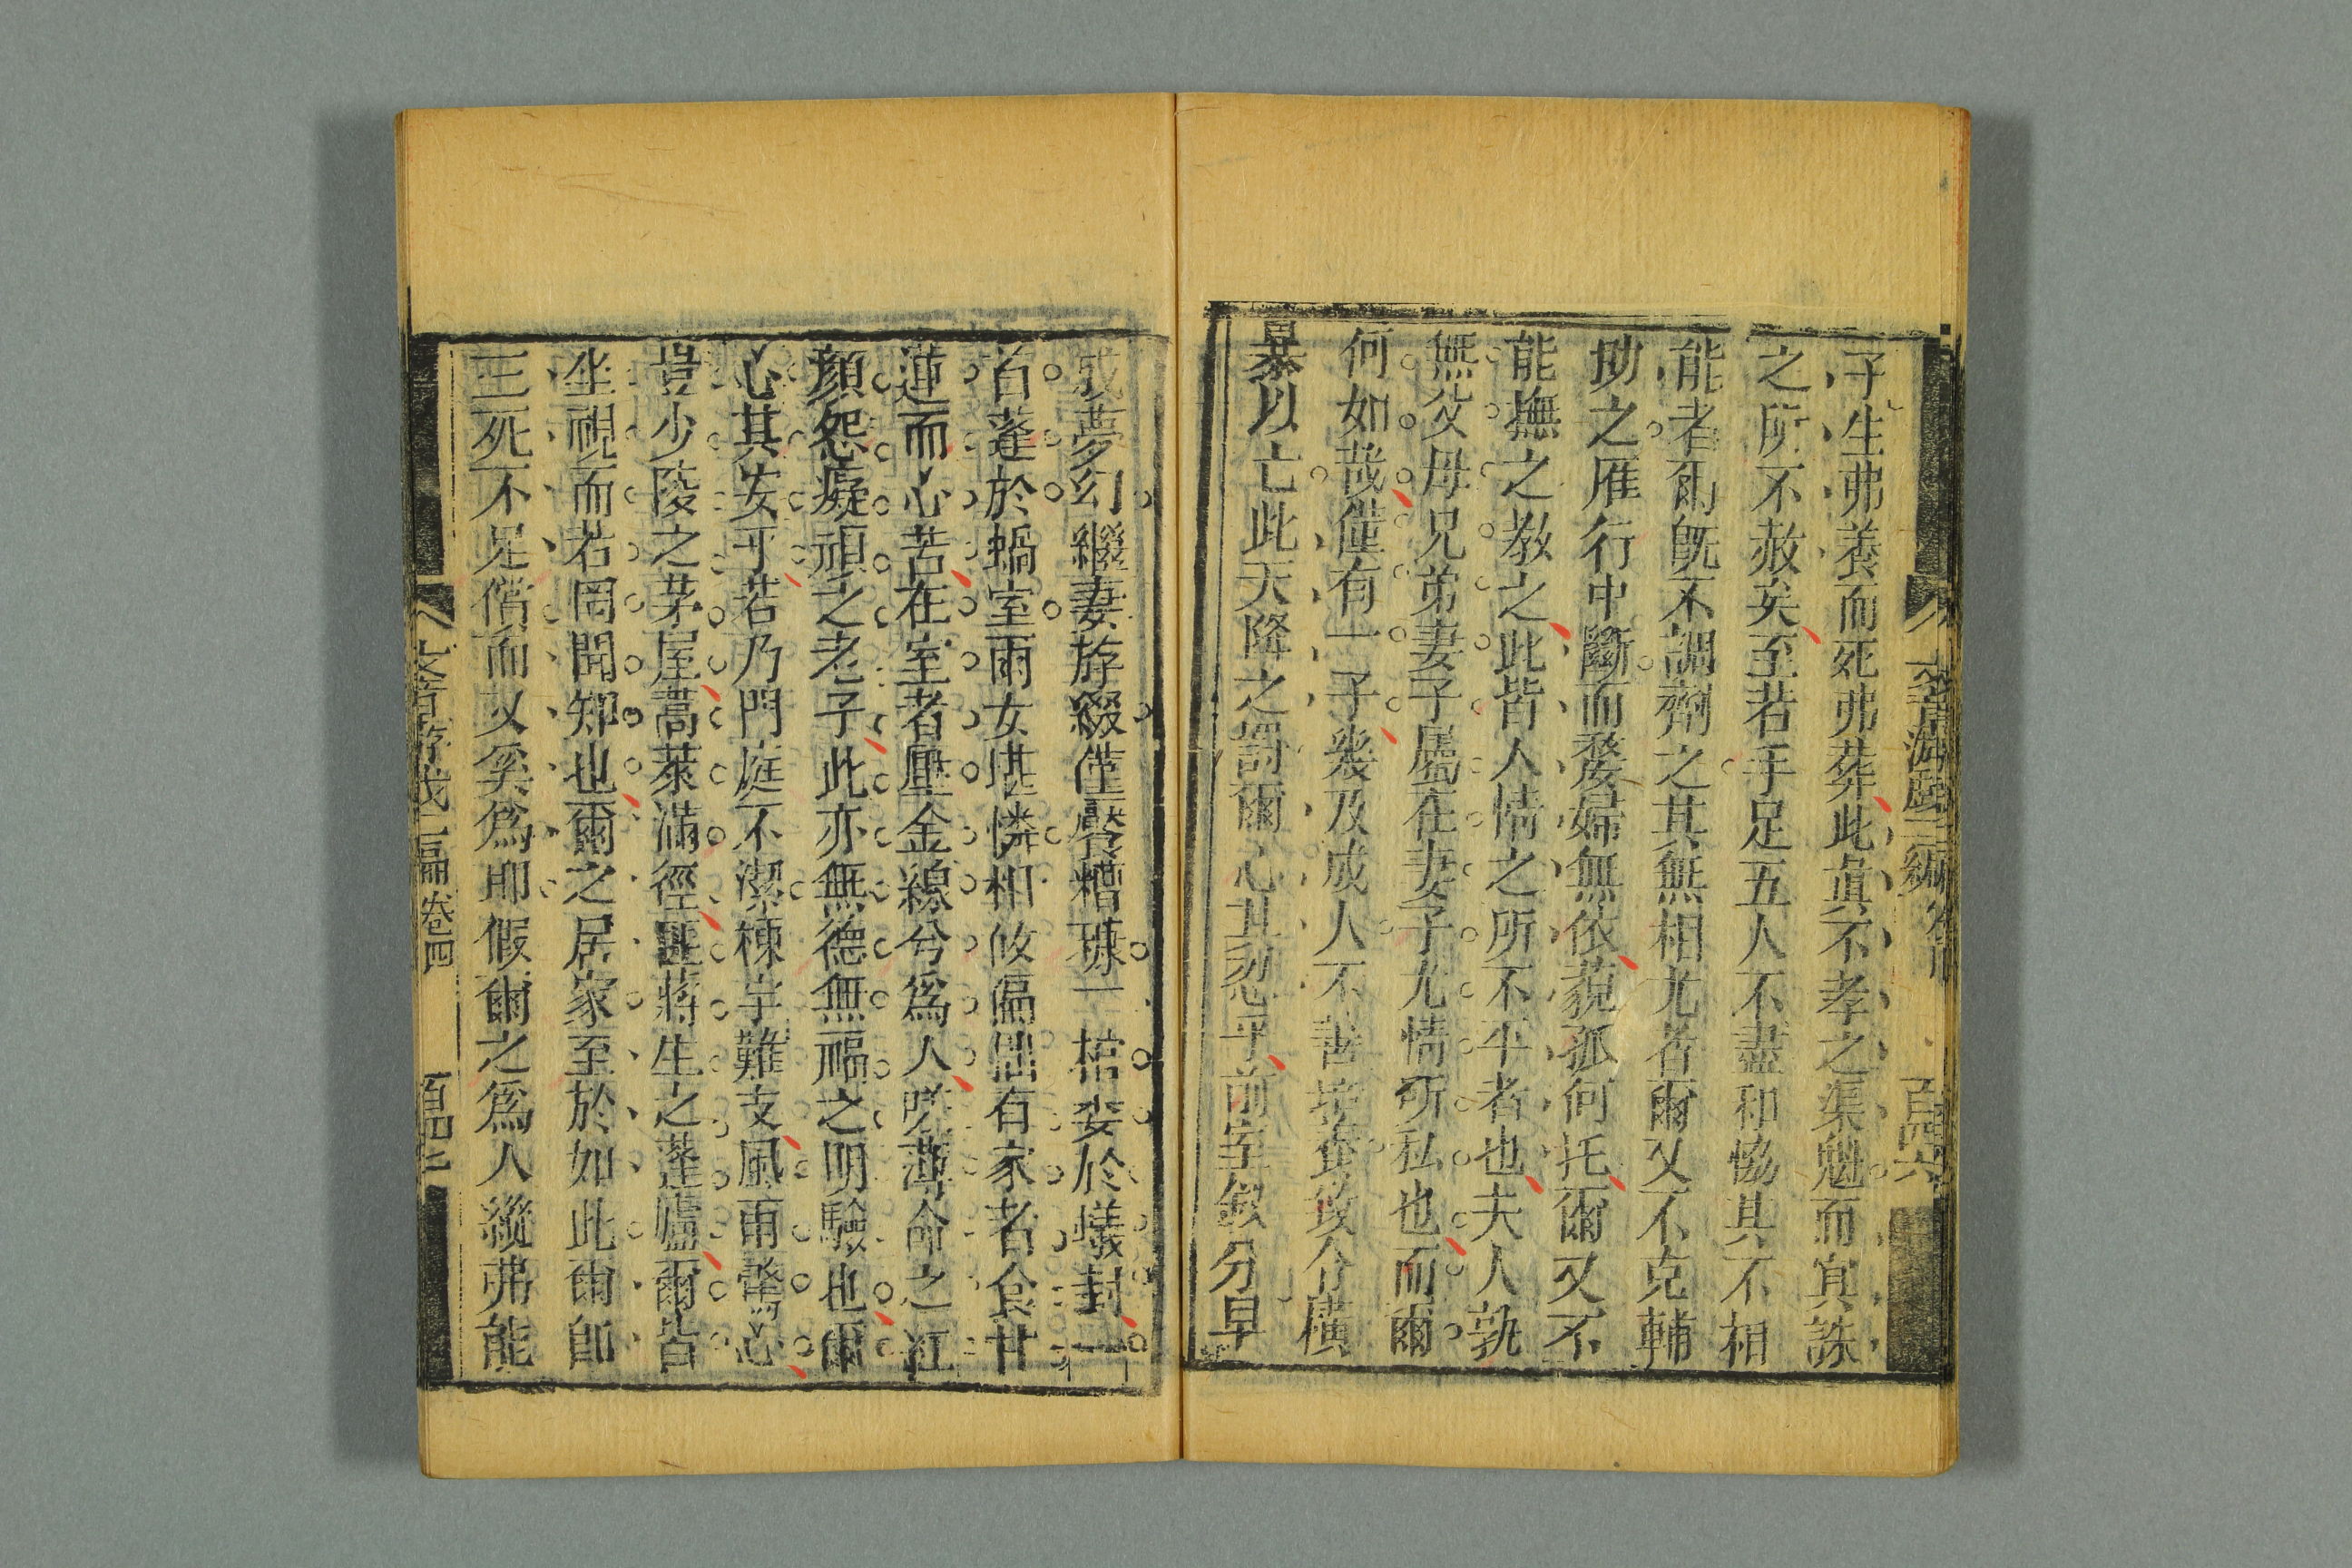 子生弗養而死弗葬此眞不孝之渠魁而冥誅
之所不赦矣至若手足五人不盡和恊其不相
能者爾旣不調劑之其無相尤者爾又不克輔
助之雁行中斷而嫠婦無依藐孤何托爾又不
能撫之教之此皆人情之所不平者也夫人孰
無父母兄弟妻子屬在妻子尤情所私也而爾
何如哉僅有一子幾及成人不善培養致令橫
暴以亡此天降之罰爾心其忍乎前室釵分早
成夢幻繼妻荐綴僅醫糟糠一棺委於蟻封一
首蓬於蝸室兩女堪憐相攸偏拙有家者食甘
蓮而心苦在室者壓金線兮爲人嗟薄命之紅
顔怨癡頑之老子此亦無德無福之明驗也爾
心其安乎若乃門庭不潔棟宇難支風雨驚心
豈少陵之茅屋蒿萊滿徑匪蔣生之蓬廬爾皆
坐視而若罔聞知也爾之居家至於如此爾卽
三死不足償而又奚爲卽假爾之爲人縱弗能
卷四